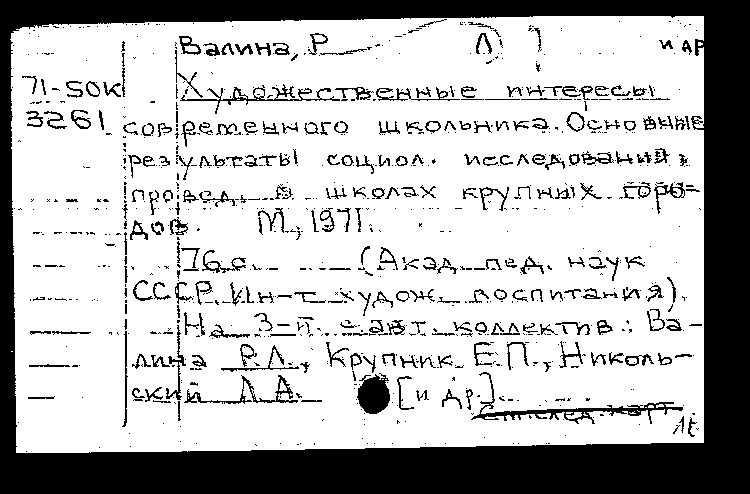 Валина, Р Л и др
71-50К Художественные интересы
3261 современного школьника. Основные
результаты социол. исследований,
провед. в школах крупных горо-
дов. М., 1971.
76с. (Акад. пед. наук
СССР. Ин-т худож. воспитания).
На 3-й с авт. коллектив: Ва-
лина Р.Л., Крупник Е.П., Николь-
ский Л.А. [и др].
См. след. карт